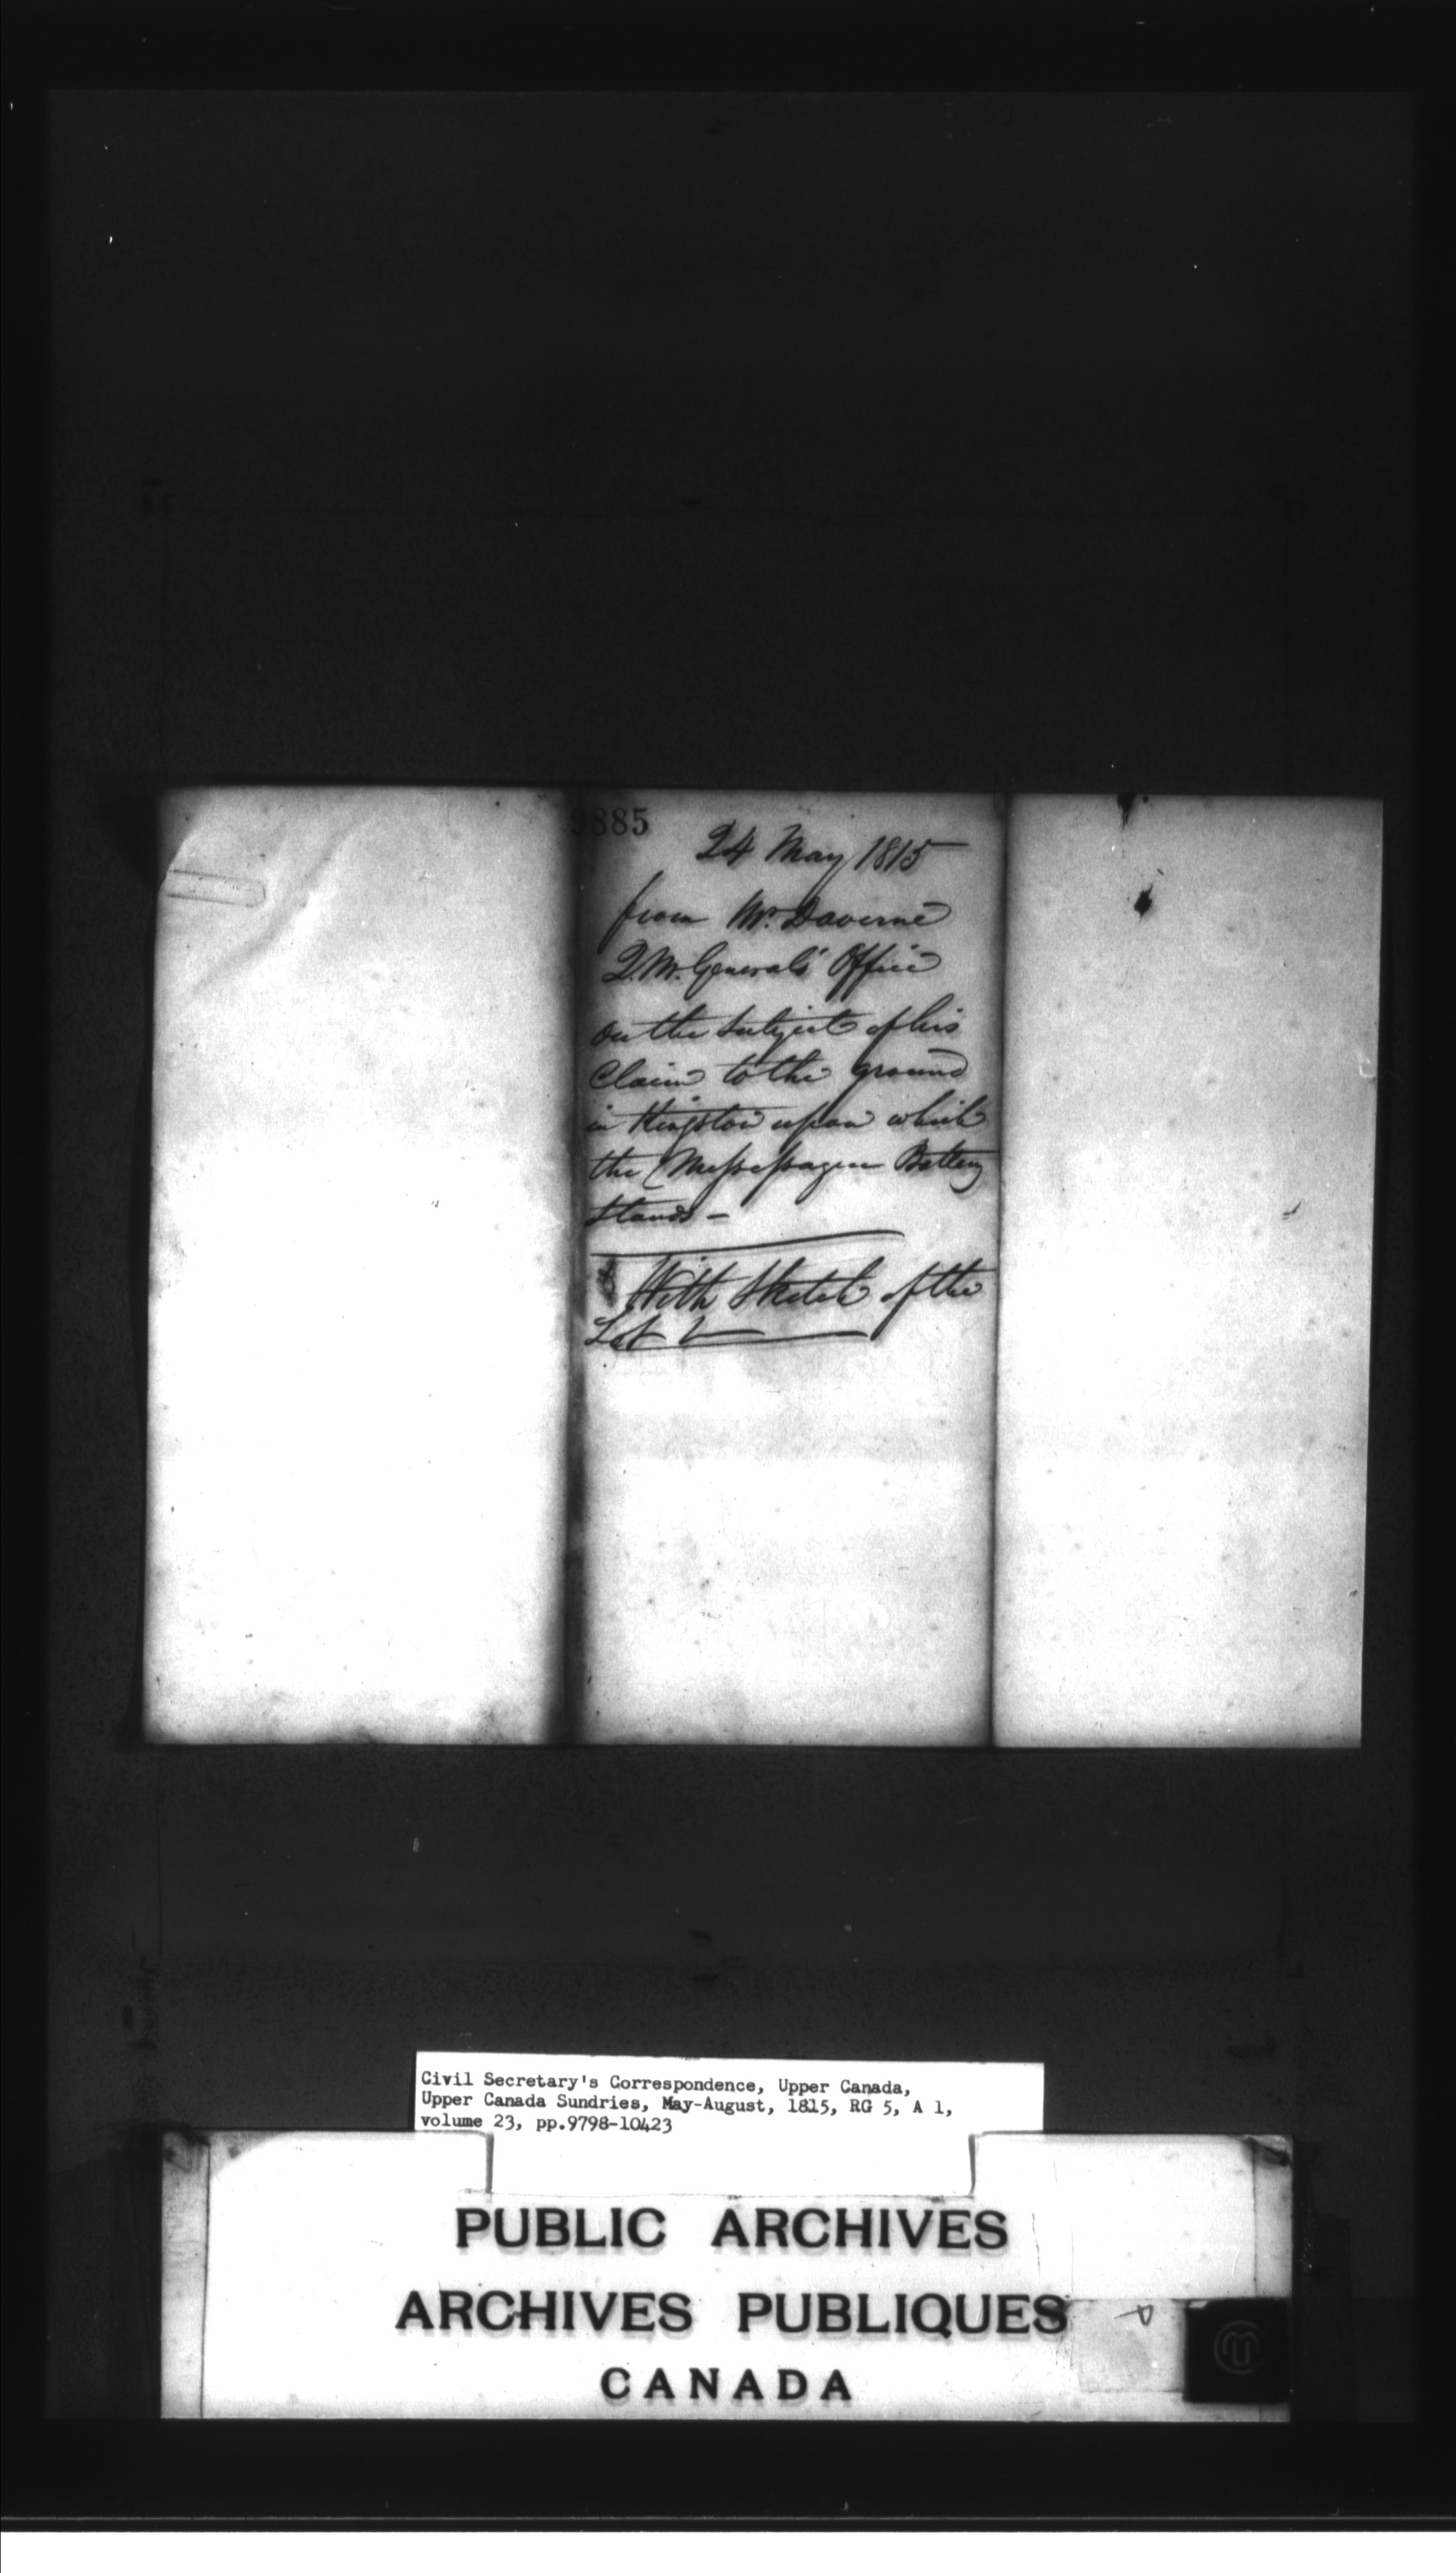 9885
24 May 1815
from Mr. Daverne
Q. M. Generals' Office
on the subject of his
Claim to the ground
in Kingston upon which
the Messessagee Battery
stands -
With Sketch of the
Lot
Civil Secretary's Correspondence, Upper Canada,
Upper Canada Sundries, May-August, 1815, RG 5, A 1,
volume 23, pp.9798-10423
PUBLIC ARCHIVES
ARCHIVES PUBLIQUES
CANADA